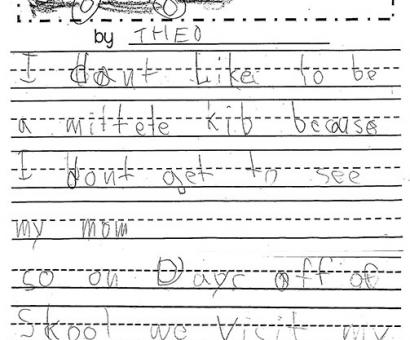 by THEO
I dont Like to be
a mittele kib because
I dont get to see
my mom
so on Days off of
Skool we Visit my